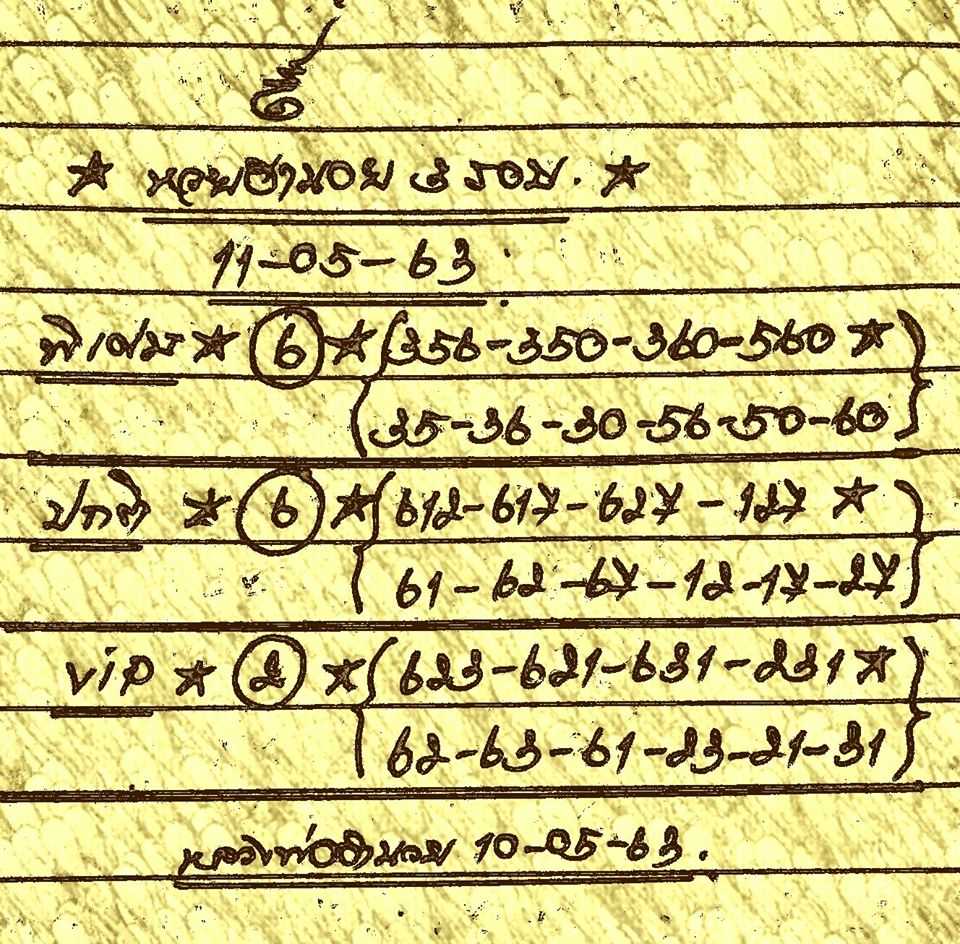 ★ หวยฮานอย 3 รอบ. ★
11-05-63.
พิเศษ ★ 6 ★ {356-350-360-560 ★}
{35-36-30-56-50-60}
ปกติ ★ 6 ★ {612-617-627-127 ★}
{61-62-67-12-17-27}
vip ★ 2 ★ {623-621-631-231 ★}
{62-63-61-23-21-31}
10-05-63.